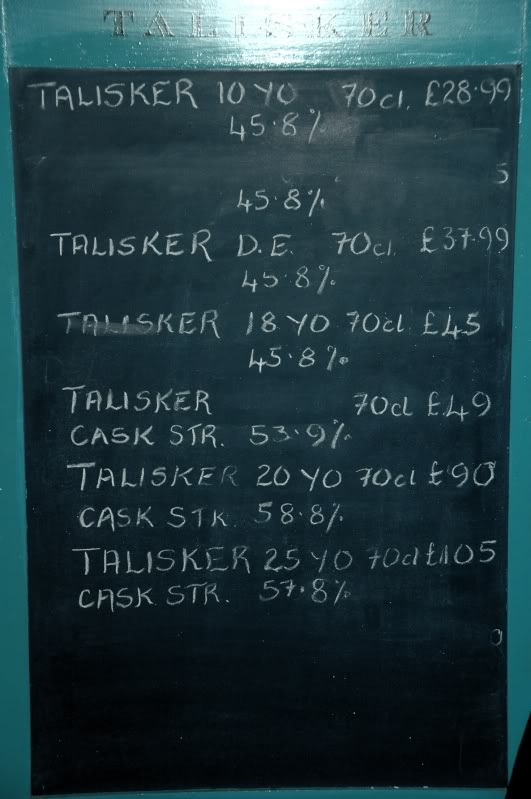 TALISKER
TALISKER 10 YO 70cl. £28.99
45.8%
5
45.8%
TALISKER D.E. 70cl. £37.99
45.8%
TALISKER 18 YO 70cl £45
45.8%
TALISKER 70cl £49
CASK STR. 53.9%
TALISKER 20 YO 70cl £90
CASK STR 58.8%
TALISKER 25 YO 70cl £105
CASK STR. 57.8%
0